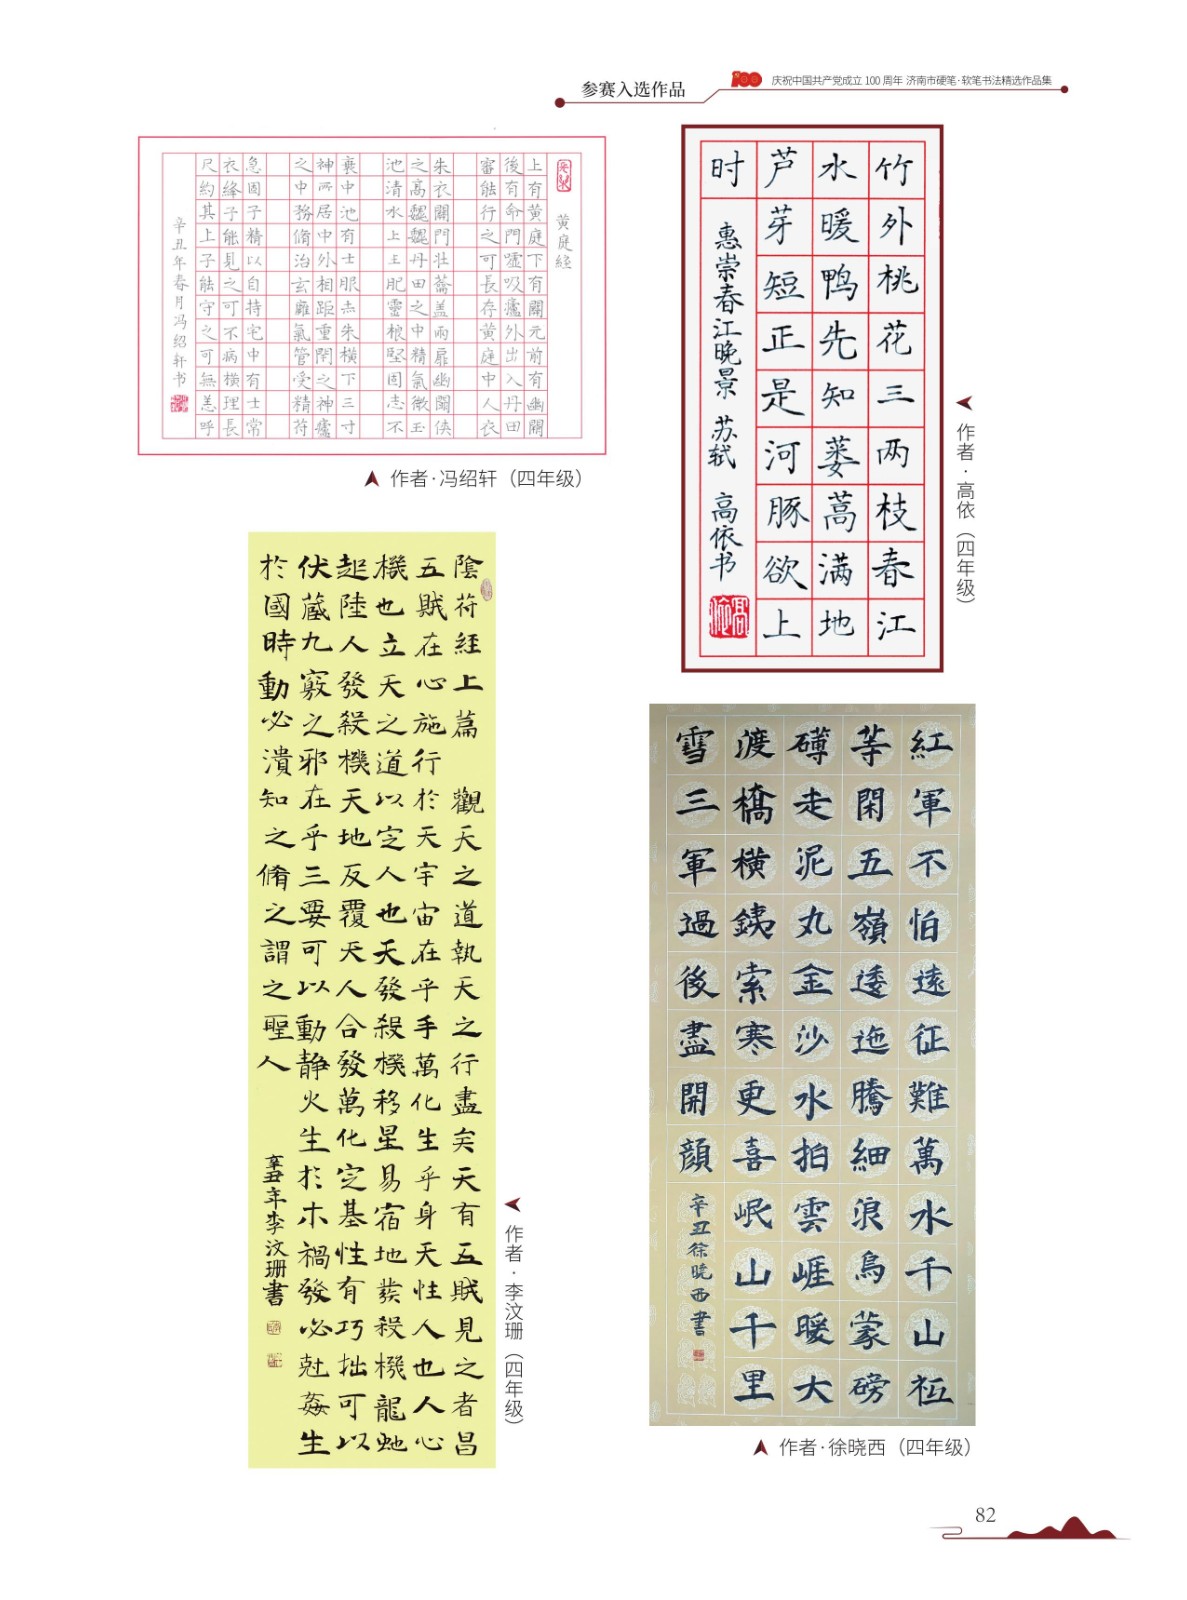 参赛入选作品
100 庆祝中国共产党成立 100 周年 济南市硬笔·软笔书法精选作品集
黄庭经
上有黄庭下有關元前有幽關
後有命門嘘吸廬外出入丹田
審能行之可長存黄庭中人衣
朱衣關門壮蘥盖兩扉幽關侠
之高魏魏丹田之中精氣微玉
池清水上生肥靈根堅固志不
衰中池有士服赤朱横下三寸
神所居中外相距重閇之神廬
之中務脩治玄廱氣管受精符
急固子精以自持宅中有士常
衣絳子能見之可不病横理長
尺約其上子能守之可無恙呼
辛丑年春月冯绍轩书
作者·冯绍轩（四年级）
竹外桃花三两枝春江
水暖鸭先知蒌蒿满地
芦芽短正是河豚欲上
时
惠崇春江晚景 苏轼 高依书
作者·高依（四年级）
陰符經上篇 觀天之道執天之行盡矣天有五賊見之者昌
五賊在心施行於天宇宙在乎手萬化生乎身天性人也人心
機也立天之道以定人也天發殺機移星易宿地發殺機龍虵
起陸人發殺機天地反覆天人合發萬化定基性有巧拙可以
伏藏九竅之邪在乎三要可以動静火生於木禍發必尅姦生
於國時動必潰知之脩之謂之聖人
辛丑年李汶珊書
作者·李汶珊（四年级）
紅軍不怕遠征難萬水千山衹
等閑五嶺逶迤騰細浪烏蒙磅
礴走泥丸金沙水拍雲崕暖大
渡橋横銕索寒更喜岷山千里
雪三軍過後盡開顔
辛丑徐晓西書
作者·徐晓西（四年级）
82